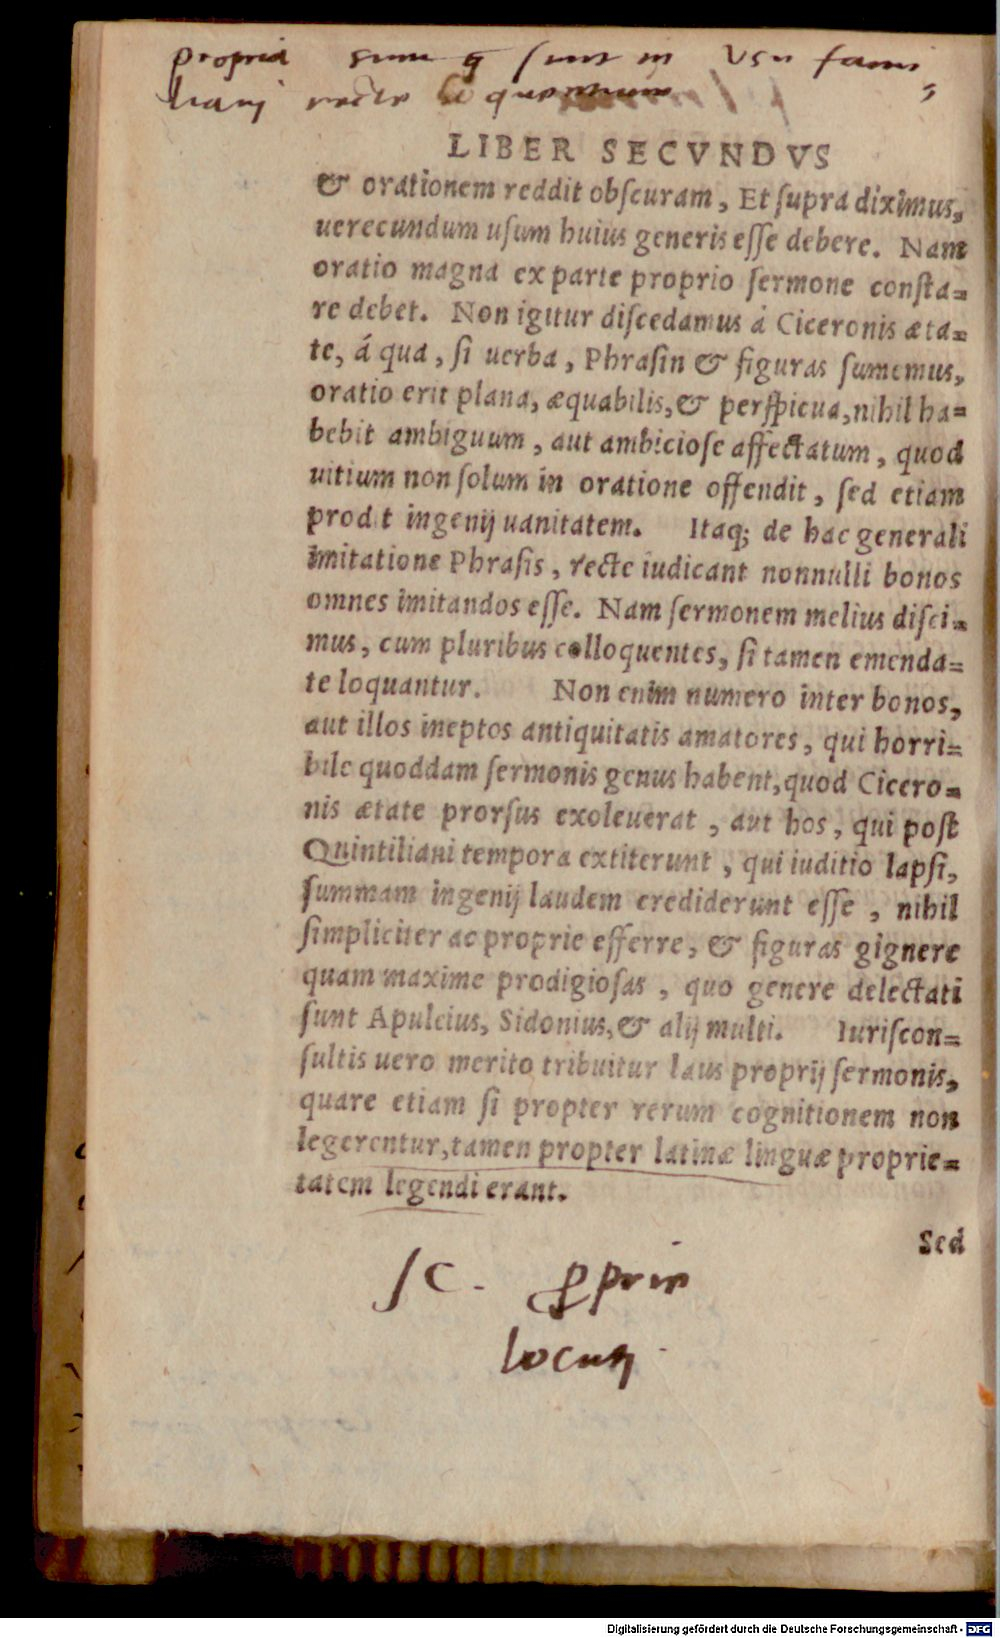 propria sunt q̃ sunt in usu fami
liari
LIBER SECVNDVS
& orationem reddit obſcuram, Et ſupra diximus,
uerecundum uſum huius generis eſſe debere. Nam
oratio magna ex parte proprio ſermone conſta=
re debet. Non igitur diſcedamus á Ciceronis æta=
te, á qua, ſi uerba, Phraſin & figuras ſumemus,
oratio erit plana, æquabilis, & perſpicua, nihil ha=
bebit ambiguum, aut ambicioſe affectatum, quod
uitium non ſolum in oratione offendit, ſed etiam
prodit ingenij uanitatem. Itaq; de hac generali
imitatione Phraſis, recte iudicant nonnulli bonos
omnes imitandos eſſe. Nam ſermonem melius diſci=
mus, cum pluribus colloquentes, ſi tamen emenda=
te loquantur. Non enim numero inter bonos,
aut illos ineptos antiquitatis amatores, qui horri=
bile quoddam ſermonis genus habent, quod Cicero=
nis ætate prorſus exoleuerat, aut hos, qui poſt
Quintiliani tempora extiterunt, qui iuditio lapſi,
ſummam ingenij laudem crediderunt eſſe, nihil
ſimpliciter ac proprie efferre, & figuras gignere
quam maxime prodigioſas, quo genere delectati
ſunt Apuleius, Sidonius, & alij multi. Iuriſcon=
ſultis uero merito tribuitur laus proprij ſermonis,
quare etiam ſi propter rerum cognitionem non
legerentur, tamen propter latinæ linguæ proprie=
tatem legendi erant.
Sed
ſc.
Digitalisierung gefördert durch die Deutsche Forschungsgemeinschaft - DFG